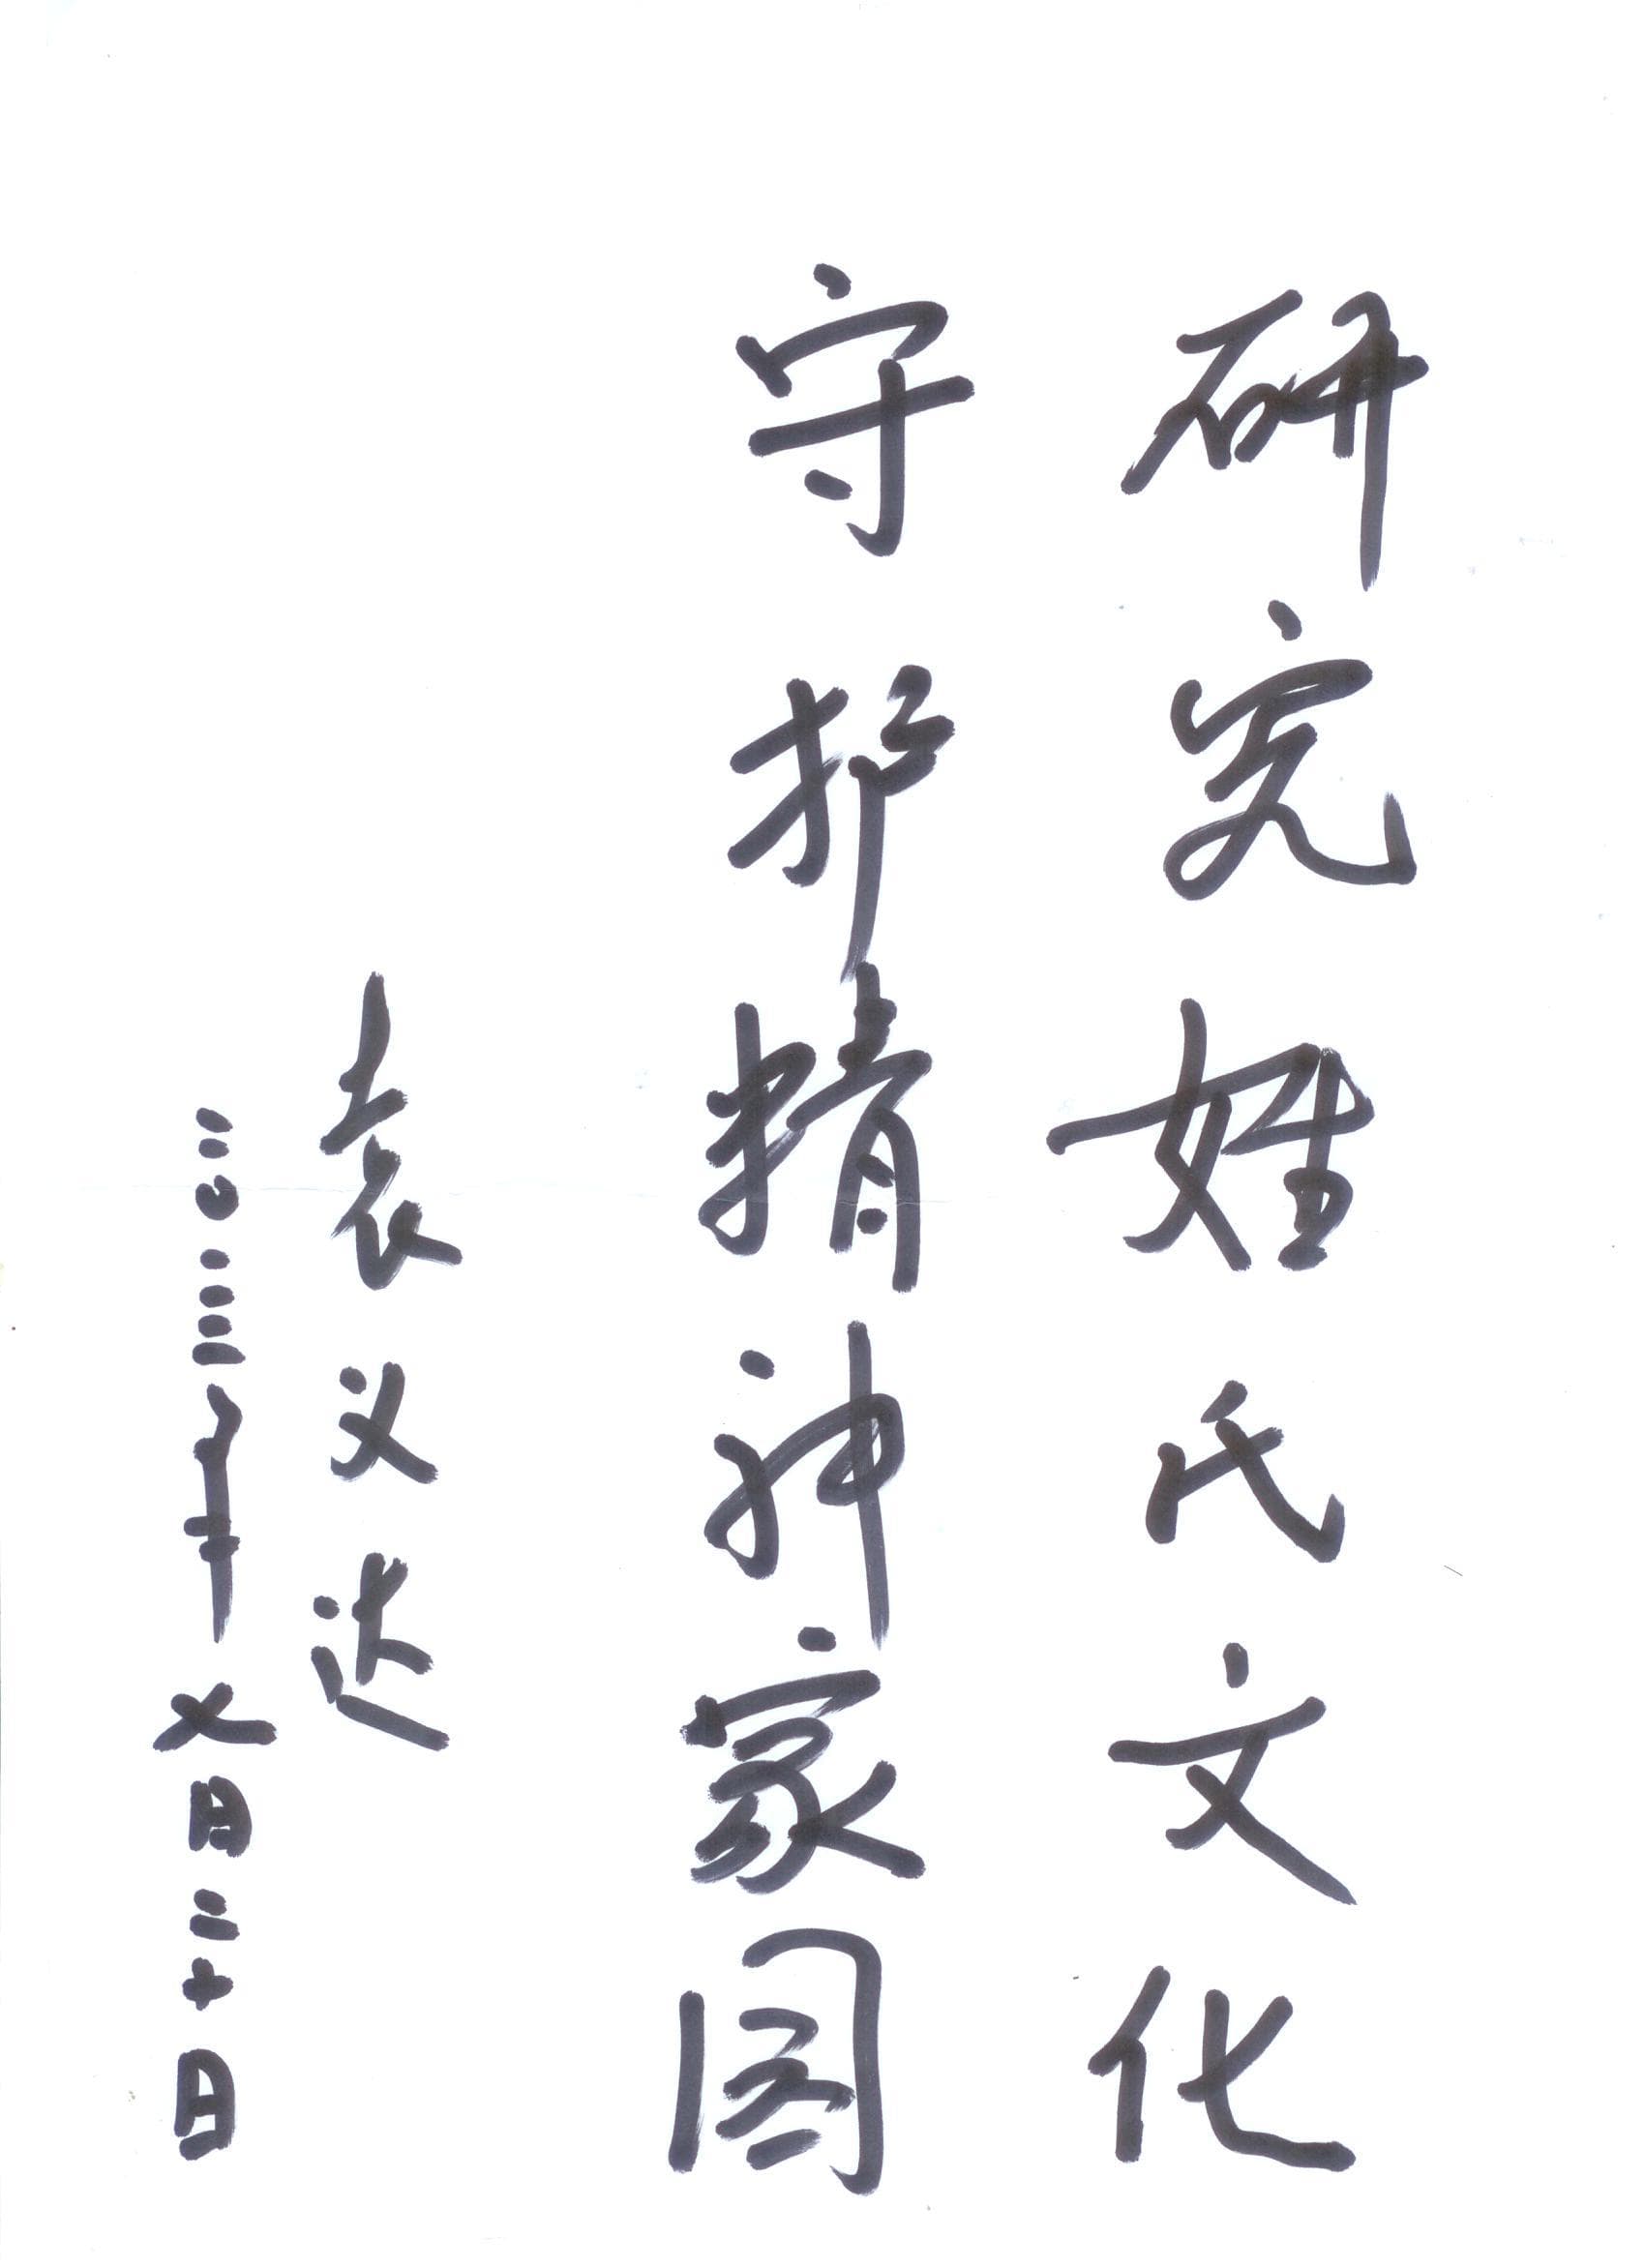 研究姓氏文化
守护精神家园
袁义达
二〇一三年七月二十日